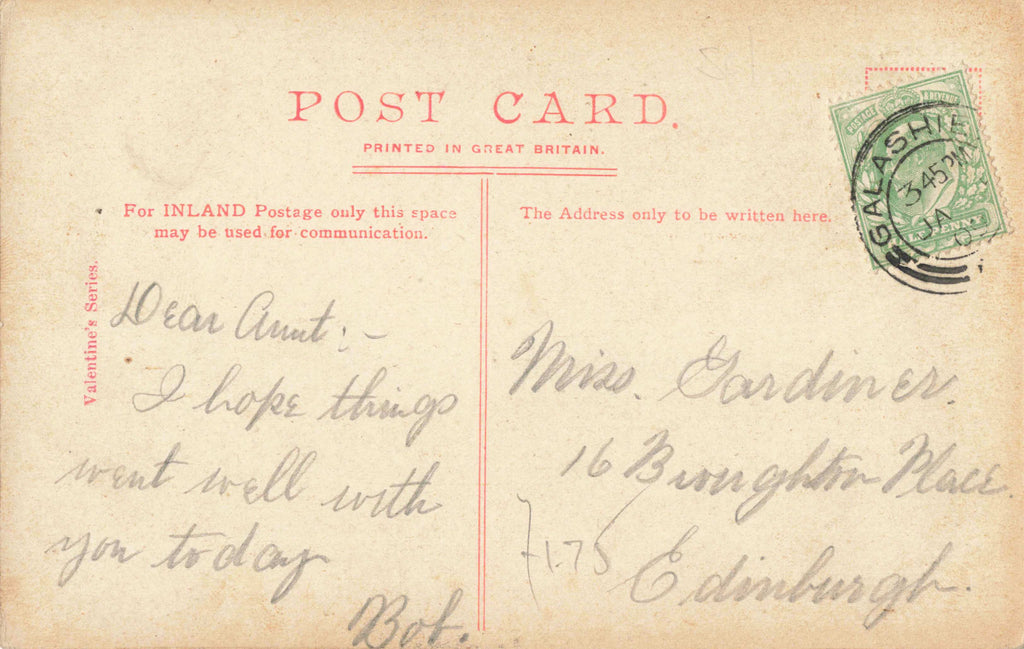 POST CARD.
PRINTED IN GREAT BRITAIN.
For INLAND Postage only this space
may be used for communication.
The Address only to be written here.
Valentine's Series.
POSTAGE
& REVENUE
GALASHIE
3 45 PM
JA
Dear Aunt:-
I hope things
went well with
you today
Bob.
Miss. Gardiner.
16 Broughton Place.
Edinburgh.